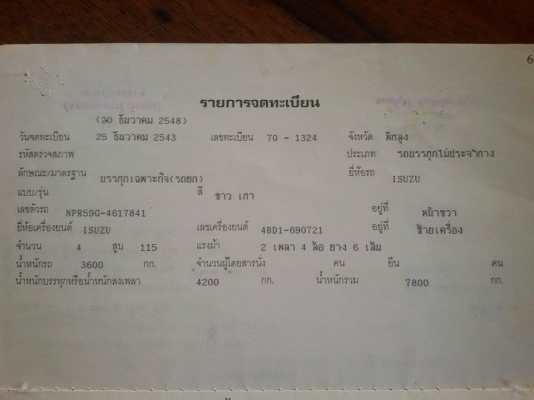 6
รายการจดทะเบียน
(20 ธันวาคม 2548)
วันจดทะเบียน 25 ธันวาคม 2543 เลขทะเบียน 70 - 1324 จังหวัด พัทลุง
รหัสตรวจสภาพ ประเภท รถบรรทุกไม่ประจำทาง
ลักษณะ/มาตรฐาน บรรทุกเฉพาะกิจ(รถยก) ยี่ห้อรถ ISUZU
แบบ/รุ่น สี ขาว เทา
เลขตัวรถ NPR59G-4617841 อยู่ที่ หน้าขวา
ยี่ห้อเครื่องยนต์ ISUZU เลขเครื่องยนต์ 4BD1-690721 อยู่ที่ ซ้ายเครื่อง
จำนวน 4 สูบ 115 แรงม้า 2 เพลา 4 ล้อ ยาง 6 เส้น
น้ำหนักรถ 3600 กก. จำนวนผู้โดยสารนั่ง คน ยืน คน
น้ำหนักบรรทุกหรือน้ำหนักลงเพลา 4200 กก. น้ำหนักรวม 7800 กก.